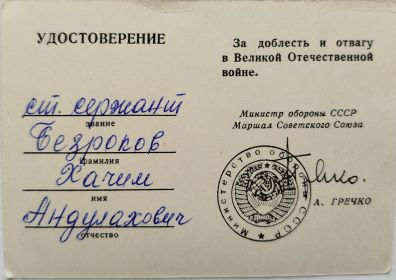 УДОСТОВЕРЕНИЕ
ст. сержант
звание
Безроков
фамилия
Хачим
имя
Андулахович
отчество
За доблесть и отвагу
в Великой Отечественной
войне.
Министр обороны СССР
Маршал Советского Союза
Министерство обороны СССР
А. ГРЕЧКО